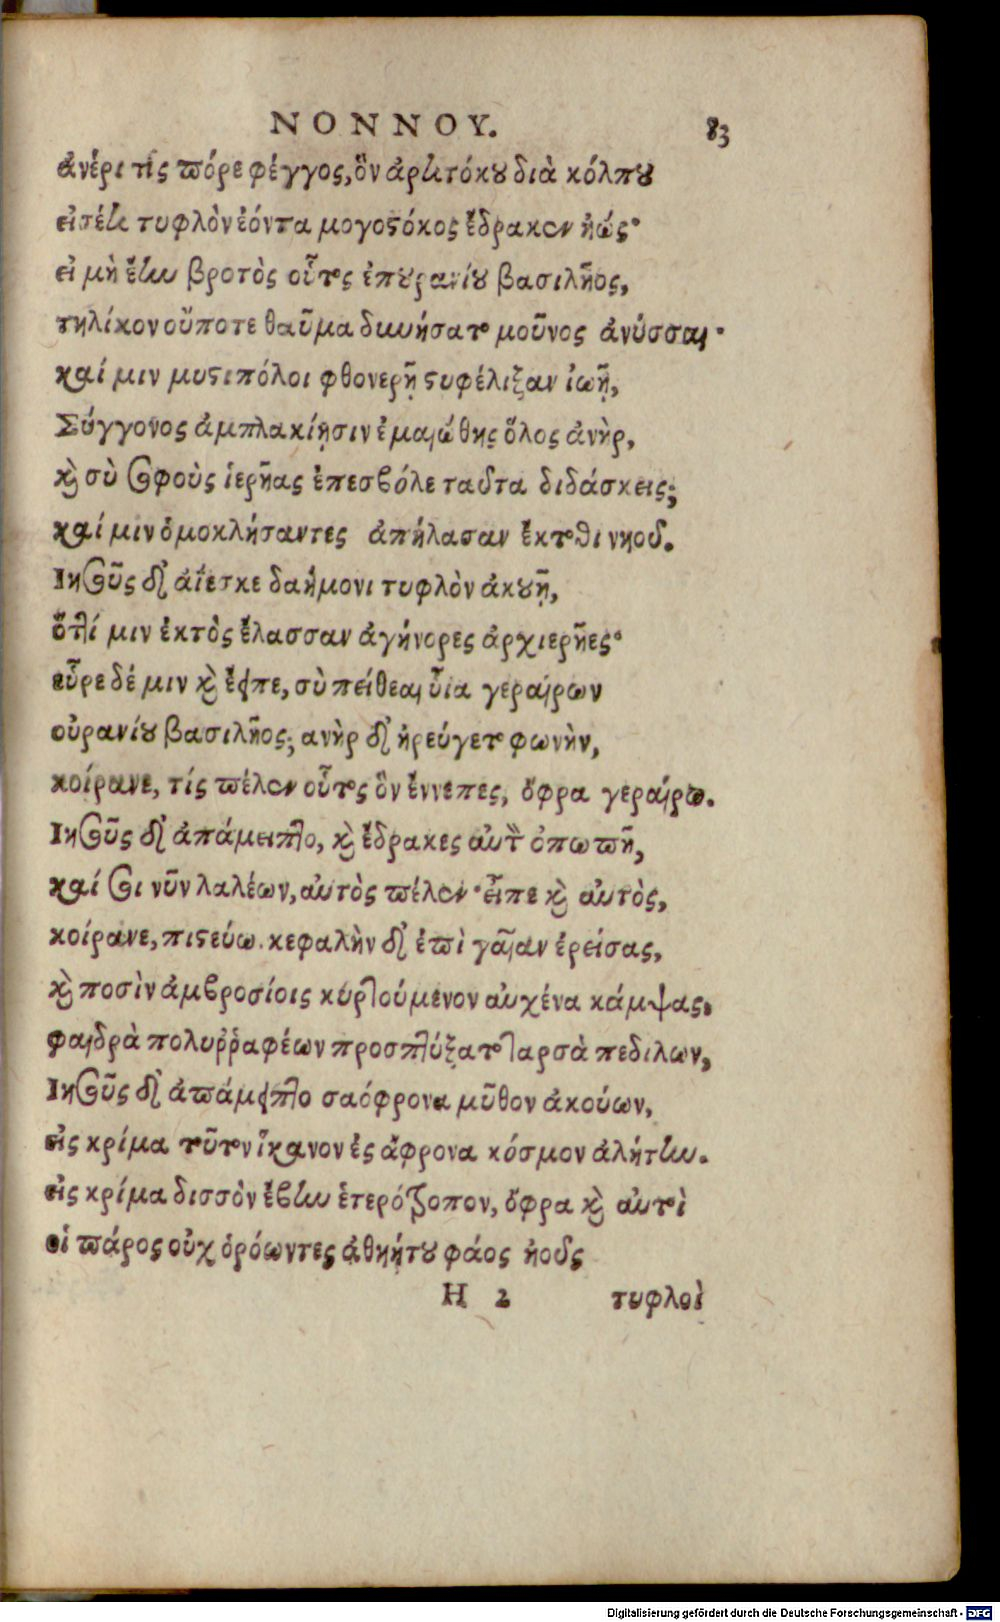 ΝΟΝΝΟΥ. 83
ἀνέρι τὶς πόρε φέγγος, ὃν ἀρτιτόκου διὰ κόλπου
εἰσέτι τυφλὸν ἐόντα μογοστόκος ἔδρακεν ἠώς·
εἰ μὴ ἔην βροτὸς οὗτος ἐπουρανίου βασιλῆος,
τηλίκον οὔποτε θαῦμα δυνήσατο μοῦνος ἀνύσσαι·
καί μιν μυστιπόλοι φθονερῇ στυφέλιξαν ἰωῇ,
Σύγγονος ἀμπλακίῃσιν ἐμαιώθης ὅλος ἀνὴρ,
καὶ σὺ σοφοὺς ἱερῆας ἐπεσβόλε ταῦτα διδάσκεις;
καί μιν ὁμοκλήσαντες ἀπήλασαν ἔκτοθι νηοῦ.
Ἰησοῦς δ' ἀΐεσκε δαήμονι τυφλὸν ἀκουῇ,
ὅττί μιν ἐκτὸς ἔλασσαν ἀγήνορες ἀρχιερῆες·
εὗρε δέ μιν καὶ ἔειπε, σὺ πείθεαι υἷα γεραίρων
οὐρανίου βασιλῆος; ανὴρ δ' ἠρεύγετο φωνὴν,
κοίρανε, τίς πέλεν οὗτος ὃν ἔννεπες, ὄφρα γεραίρω.
Ἰησοῦς δ' ἀπάμειπτο, καὶ ἔδρακες αὐτὸν ὀπωπῇ,
καί σοι νῦν λαλέων, αὐτὸς πέλεν· εἶπε καὶ αὐτὸς,
κοίρανε, πιστεύω. κεφαλὴν δ' ἐπὶ γαῖαν ἐρείσας,
καὶ ποσὶν ἀμβροσίοις κυρτούμενον αὐχένα κάμψας,
φαιδρὰ πολυῤῥαφέων προσπτύξατο ταρσὰ πεδιλων,
Ἰησοῦς δ' ἀπάμειπτο σαόφρονα μῦθον ἀκούων,
εἰς κρίμα τοῦτον ἵκανον ἐς ἄφρονα κόσμον ἀλήτην.
εἰς κρίμα δισσὸν ἔβην ἑτερότροπον, ὄφρα καὶ αὐτοὶ
οἱ πάρος οὐχ ὁρόωντες ἀθηήτου φάος ἠοῦς
H 2 τυφλοὶ
Digitalisierung gefördert durch die Deutsche Forschungsgemeinschaft - DFG